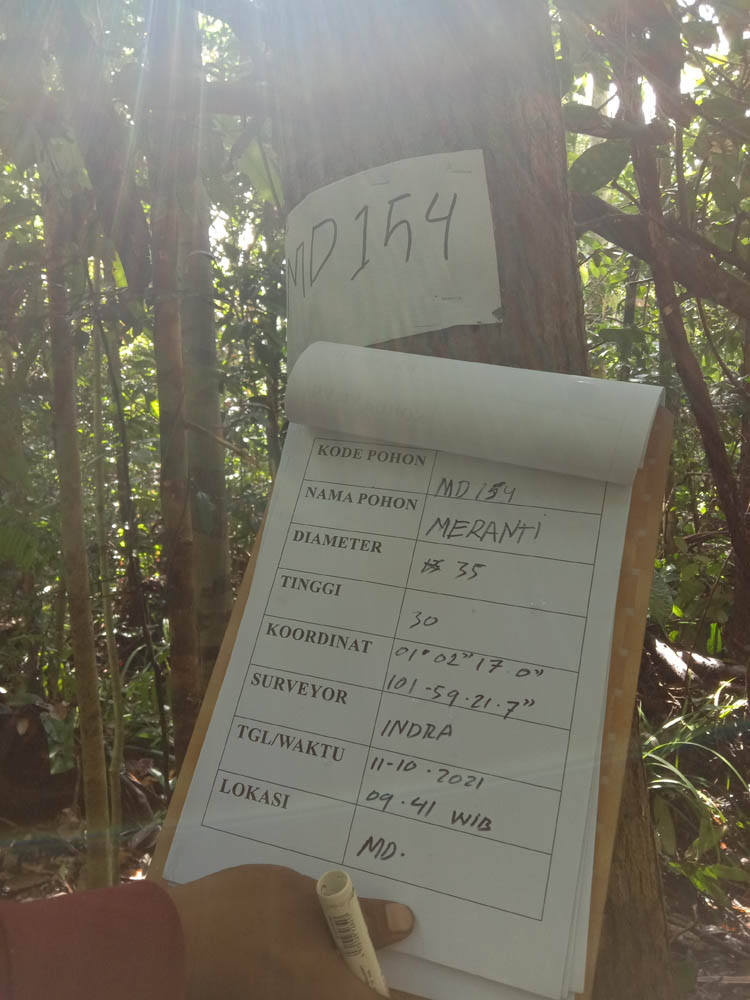 MD154
KODE POHON MD 154
NAMA POHON MERANTI
DIAMETER 35
TINGGI 30
KOORDINAT 01° 02" 17 0"
101-59.21.7"
SURVEYOR INDRA
TGL/WAKTU 11-10.2021
09.41 WIB
LOKASI MD.